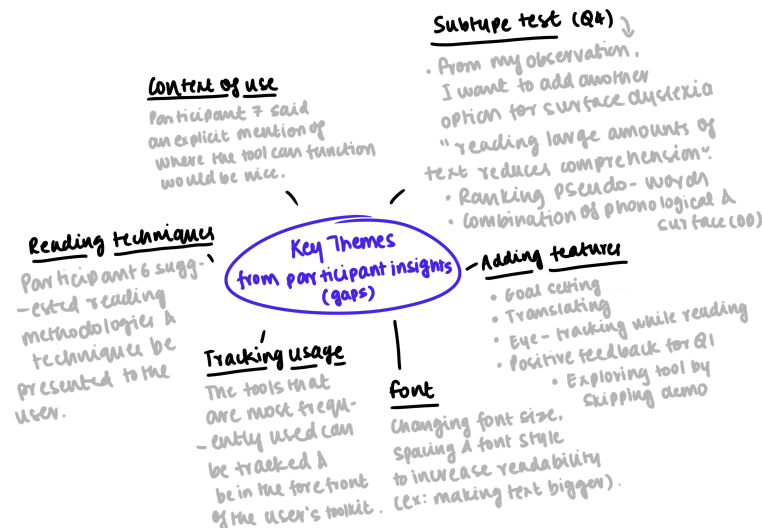 Key Themes
from participant insights
(gaps)
Context of use
Participant 7 said
an explicit mention of
where the tool can function
would be nice.
Subtype test (Q4)
• From my observation,
I want to add another
option for surface dyslexia
"reading large amounts of
text reduces comprehension".
• Ranking pseudo-words
• Combination of phonological &
surface (DD)
Reading techniques
Participant 6 sugg-
-ested reading
methodologies &
techniques be
presented to the
user.
Adding features
• Goal setting
• Translating
• Eye-tracking while reading
• Positive feedback for Q1
• Exploring tool by
skipping demo
Tracking usage
The tools that
are most frequ-
-ently used can
be tracked &
be in the forefront
of the user's toolkit.
Font
Changing font size,
spacing & font style
to increase readability
(ex: making text bigger).